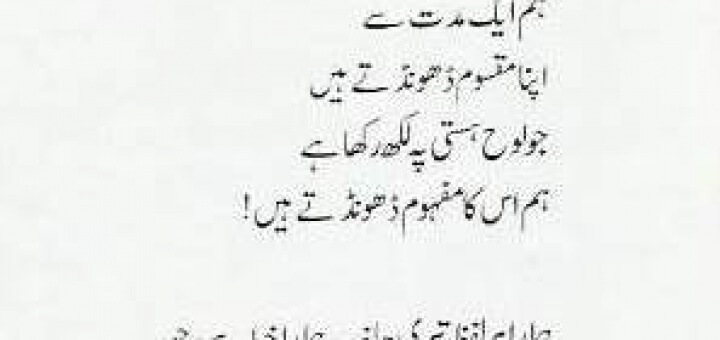 ہم ایک مدت سے
اپنا مقسوم ڈھونڈتے ہیں
جو لوح ہستی پہ لکھ رکھا ہے
ہم اس کا مفہوم ڈھونڈتے ہیں!